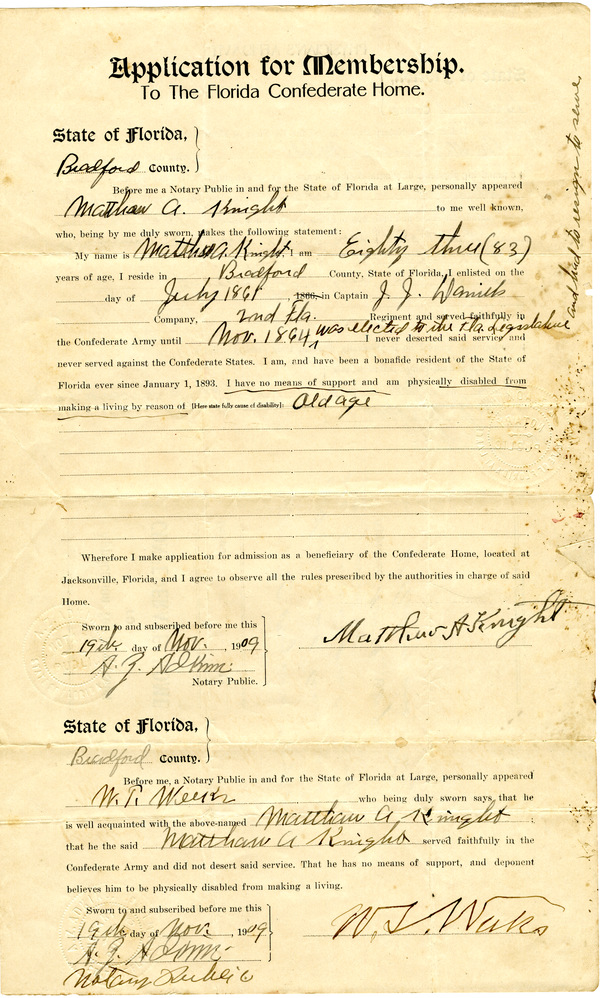 Application for Membership.
To The Florida Confederate Home.
State of Florida,
Bradford County.
Before me a Notary Public in and for the State of Florida at Large, personally appeared
Matthew A. Knight to me well known,
who, being by me duly sworn, makes the following statement:
My name is Matthew A. Knight I am Eighty three (83)
years of age, I reside in Bradford County, State of Florida, I enlisted on the
day of July 1861 , 186 , in Captain J. J. Daniels
Company, 2nd Fla. Regiment and served faithfully in
the Confederate Army until Nov. 1864 was elected to the Fla. Legislature I never deserted said service and
and had to resign to serve
never served against the Confederate States. I am, and have been a bonafide resident of the State of
Florida ever since January 1, 1893. I have no means of support and am physically disabled from
making a living by reason of [Here state fully cause of disability]: Old age
Wherefore I make application for admission as a beneficiary of the Confederate Home, located at
Jacksonville, Florida, and I agree to observe all the rules prescribed by the authorities in charge of said
Home.
Sworn to and subscribed before me this
19th day of Nov. , 1909
Matthew A Knight
A. Z. Adkins
Notary Public.
State of Florida,
Bradford County.
Before me, a Notary Public in and for the State of Florida at Large, personally appeared
W. T. Weeks who being duly sworn says, that he
is well acquainted with the above-named Matthew A Knight ;
that he the said Matthew A Knight served faithfully in the
Confederate Army and did not desert said service. That he has no means of support, and deponent
believes him to be physically disabled from making a living.
Sworn to and subscribed before me this
19th day of Nov. , 1909
W. T. Weeks
A. Z. Adkins
Notary Public